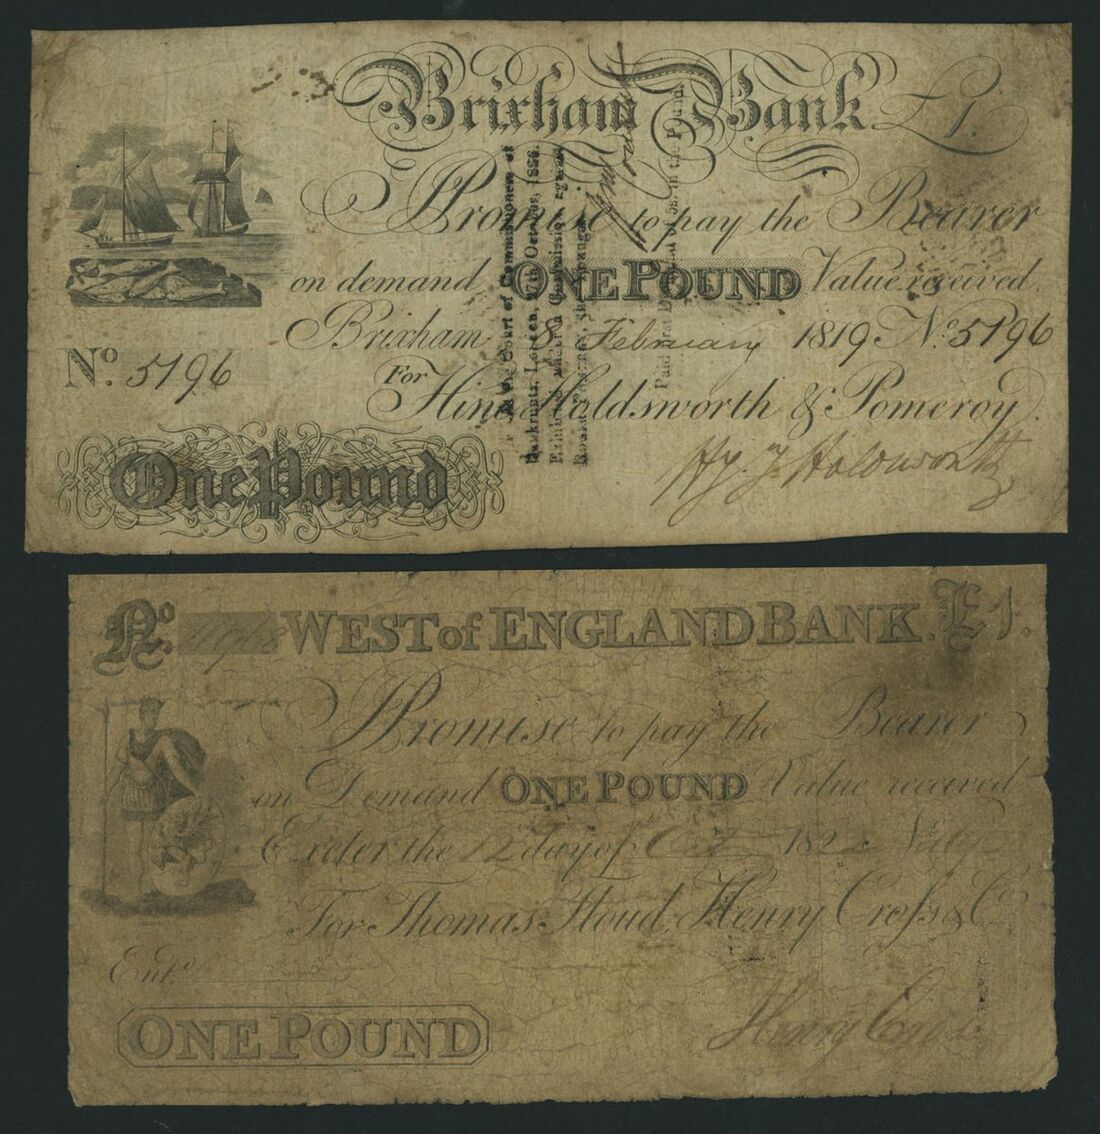 Brixham Bank £1.
I Promise to pay the Bearer
on demand ONE POUND Value received
Brixham 8 February 1819 No. 5196
No. 5196
For Hine Holdsworth & Pomeroy.
One Pound
Hy. J. Holdsworth
Court of Commissioners of
Bankrupts, London, October, 1826.
Exhibited under a Commission against
Paid first Dividend of in the Pound.
No. WEST of ENGLAND BANK. £1.
I Promise to pay the Bearer
on Demand ONE POUND Value received
Exeter the 12 day of Oct 182
For Thomas Floud, Henry Cross & Co.
Entd.
Henry Cross
ONE POUND